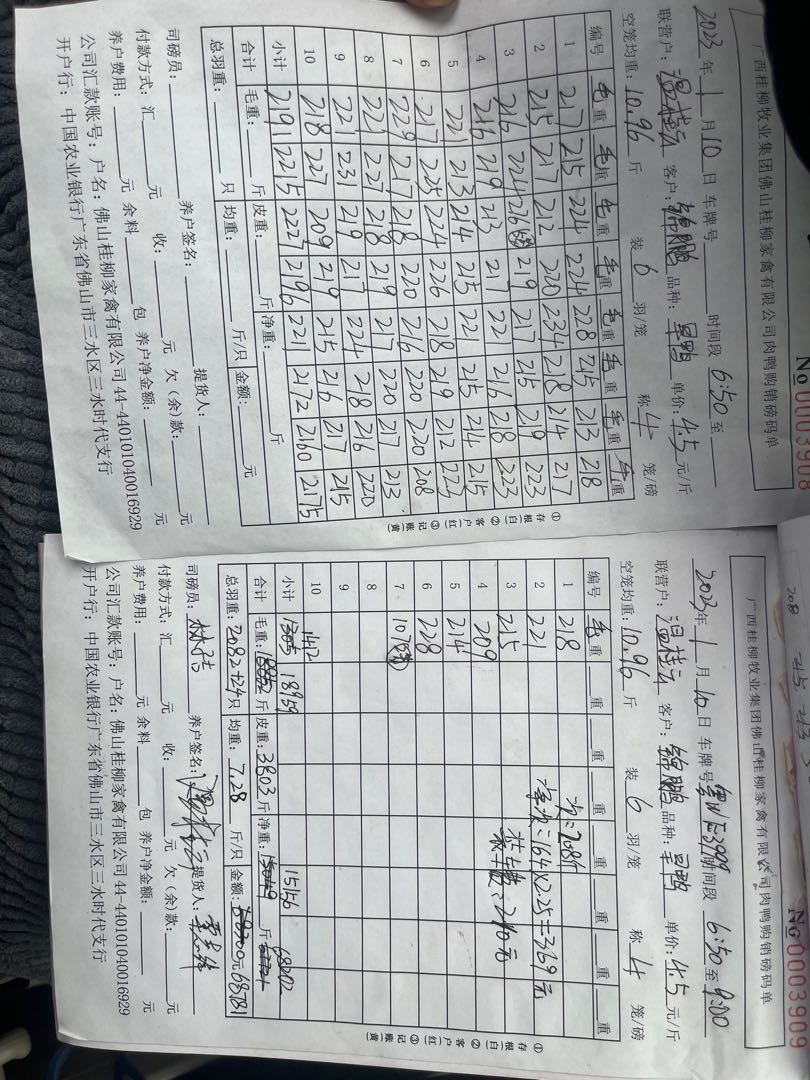 广西桂柳牧业集团佛山桂柳家禽有限公司肉鸭购销磅码单
№ 0003908
2023年1月10日 车牌号 时间段 6:50至
联营户: 温桂云 客户: 锦鹏 品种: 单价: 4.5元/斤
空笼均重: 10.96斤 装6羽/笼 称4笼/磅
编号 毛重 毛重 毛重 毛重 毛重 毛重 毛重 毛重
1 217 215 224 224 228 215 213 218
2 215 217 212 220 234 218 214 217
3 216 224 216 219 217 215 219 223
4 216 219 213 217 221 216 218 223
5 221 213 214 215 221 215 214 215
6 217 225 224 226 218 219 212 223
7 229 217 218 220 216 220 220 208
8 221 227 218 219 217 220 217 213
9 221 231 219 217 224 218 216 220
10 218 227 209 219 215 216 217 215
小计 2191 2215 2196 2172 2160 2175
合计 毛重: 斤 皮重: 斤 净重: 斤
总羽重: 只 均重: 斤/只 金额: 元
司磅员: 养户签名: 提货人:
付款方式: 汇 元 收: 元 欠(余)款: 元
养户费用: 元 余料 包 养户净金额: 元
公司汇款账号: 户名: 佛山桂柳家禽有限公司44-440101040016929
开户行: 中国农业银行广东省佛山市三水区三水时代支行
①存根(白) ②客户(红) ③记账(黄)
广西桂柳牧业集团佛山桂柳家禽有限公司肉鸭购销磅码单
№ 0003909
2023年1月10日 车牌号 时间段 6:50至9:00
联营户: 温桂云 客户: 锦鹏 品种: 单价: 4.5元/斤
空笼均重: 10.96斤 装6羽/笼 称4笼/磅
编号 毛重 重 重 重 重 重 重 重
1 218
2 221
3 215
4 209
5 214
6 228
7 107
8
9
10 1412
小计 1305 18959 15156 68202
合计 毛重: 斤 皮重: 3803斤 净重: 斤
总羽重: 2082只 均重: 7.28斤/只 金额: 元
司磅员: 养户签名: 提货人:
付款方式: 汇 元 收: 元 欠(余)款: 元
养户费用: 元 余料 包 养户净金额: 元
公司汇款账号: 户名: 佛山桂柳家禽有限公司44-440101040016929
开户行: 中国农业银行广东省佛山市三水区三水时代支行
①存根(白) ②客户(红) ③记账(黄)